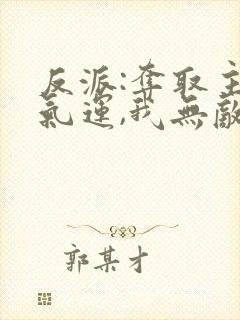 反派:奪取主
氣運,我無敵
郭某才